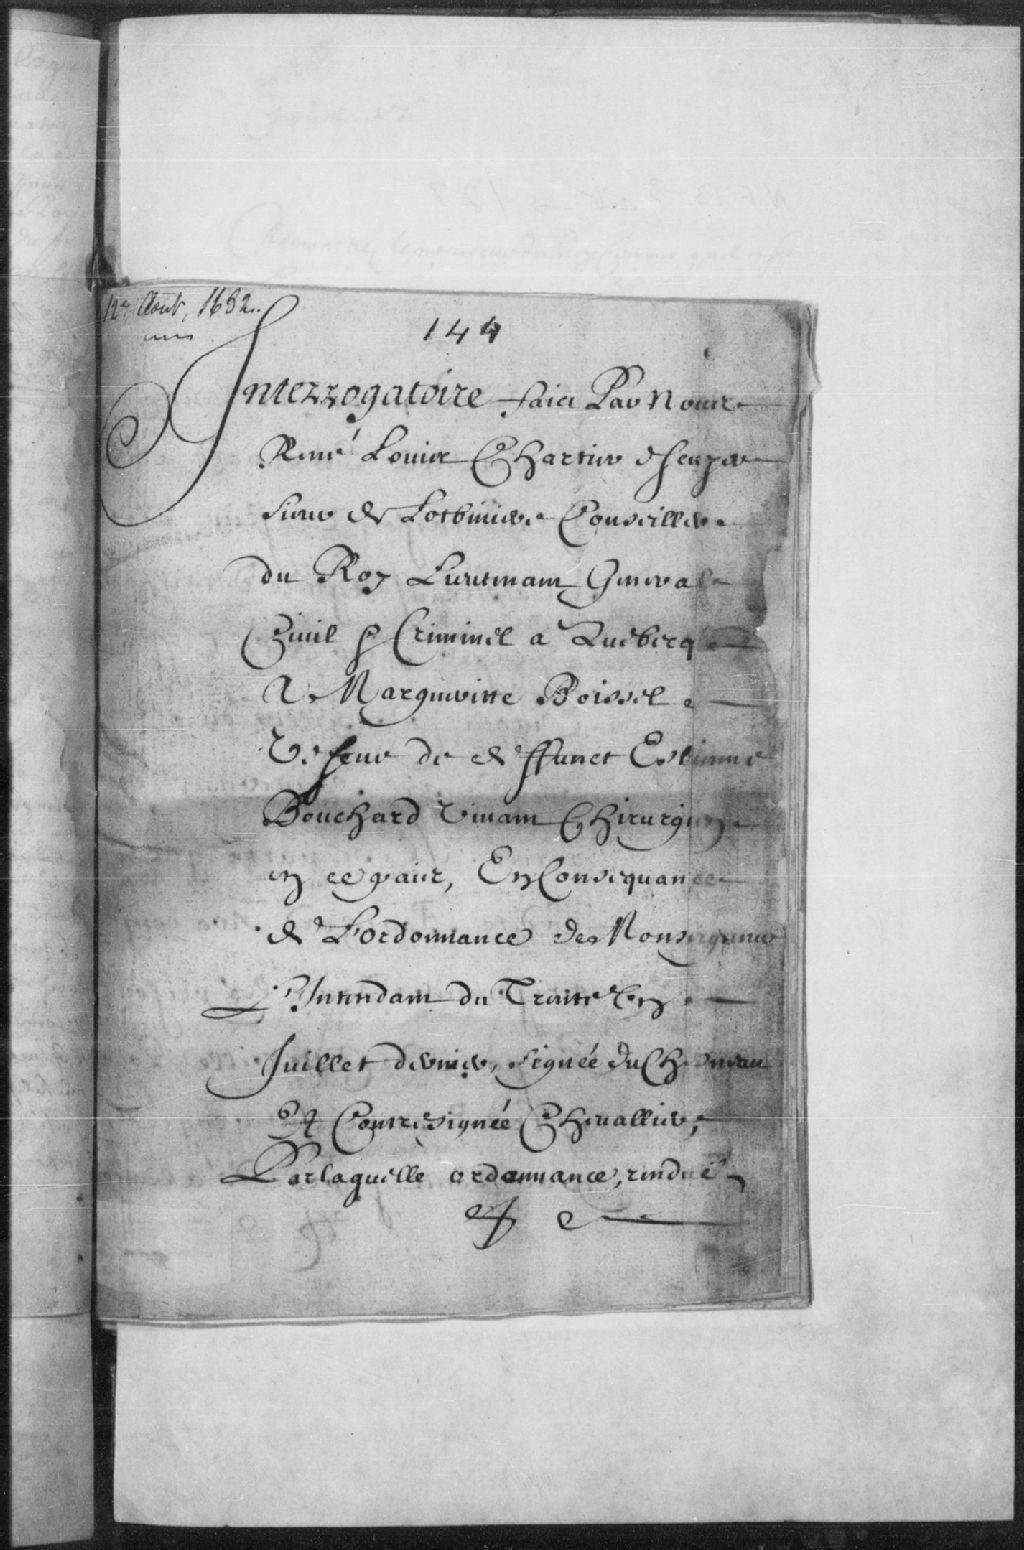 12e Aout, 1682.
144
Interrogatoire faict Par Nous
René Louis Chartier escuyer
sieur de Lotbiniere Conseiller
du Roy Lieutenant General
Civil & Criminel a Quebecq
A Margueritte Boissel
Vefve de deffunct Estienne
Bouchard vivant Chirurgien
en ce pais, En Consequance
de L'ordonnance de Monseigneur
L'Intendant du Trante Un
Juillet dernier, signée DuChesneau
Et Contresignée Chevallier,
Par laquelle ordonnance, rendue